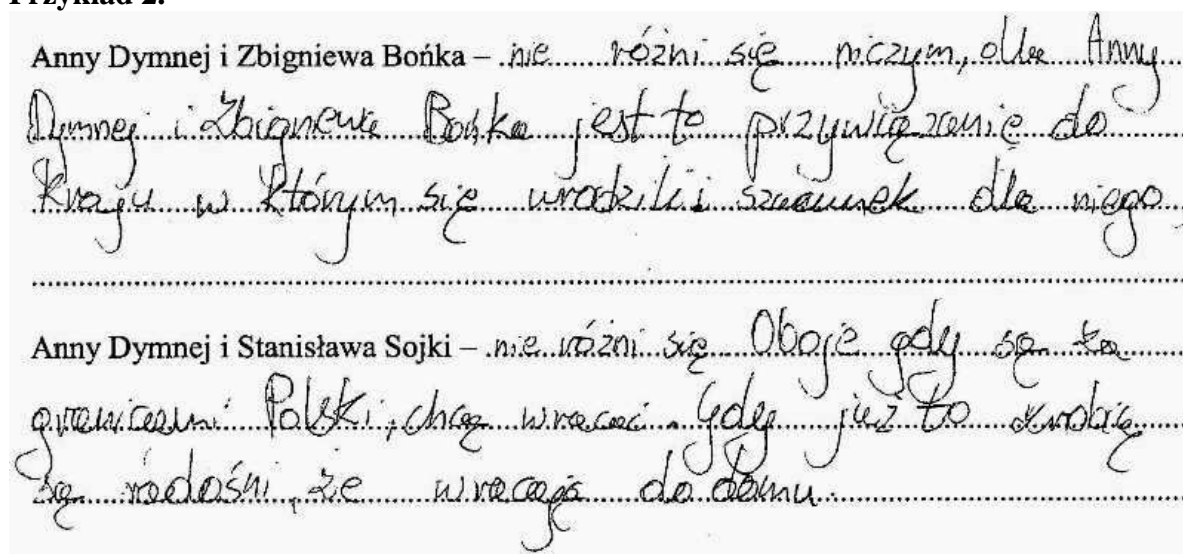 Przykład 2.
Anny Dymnej i Zbigniewa Bońka – nie różni się niczym, dla Anny
Dymnej i Zbigniewa Bońka jest to przywiązanie do
kraju w którym się urodzili i szacunek dla niego.
Anny Dymnej i Stanisława Sojki – nie różni się Oboje gdy są za
granicami Polski, chcą wracać. Gdy już to zrobią
są radośni, że wracają do domu.